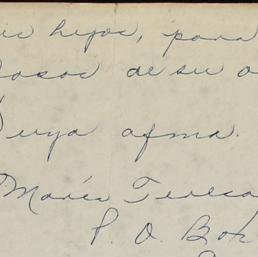 hijos, para
de su
Suya afma.
María Teresa
P. O. Box